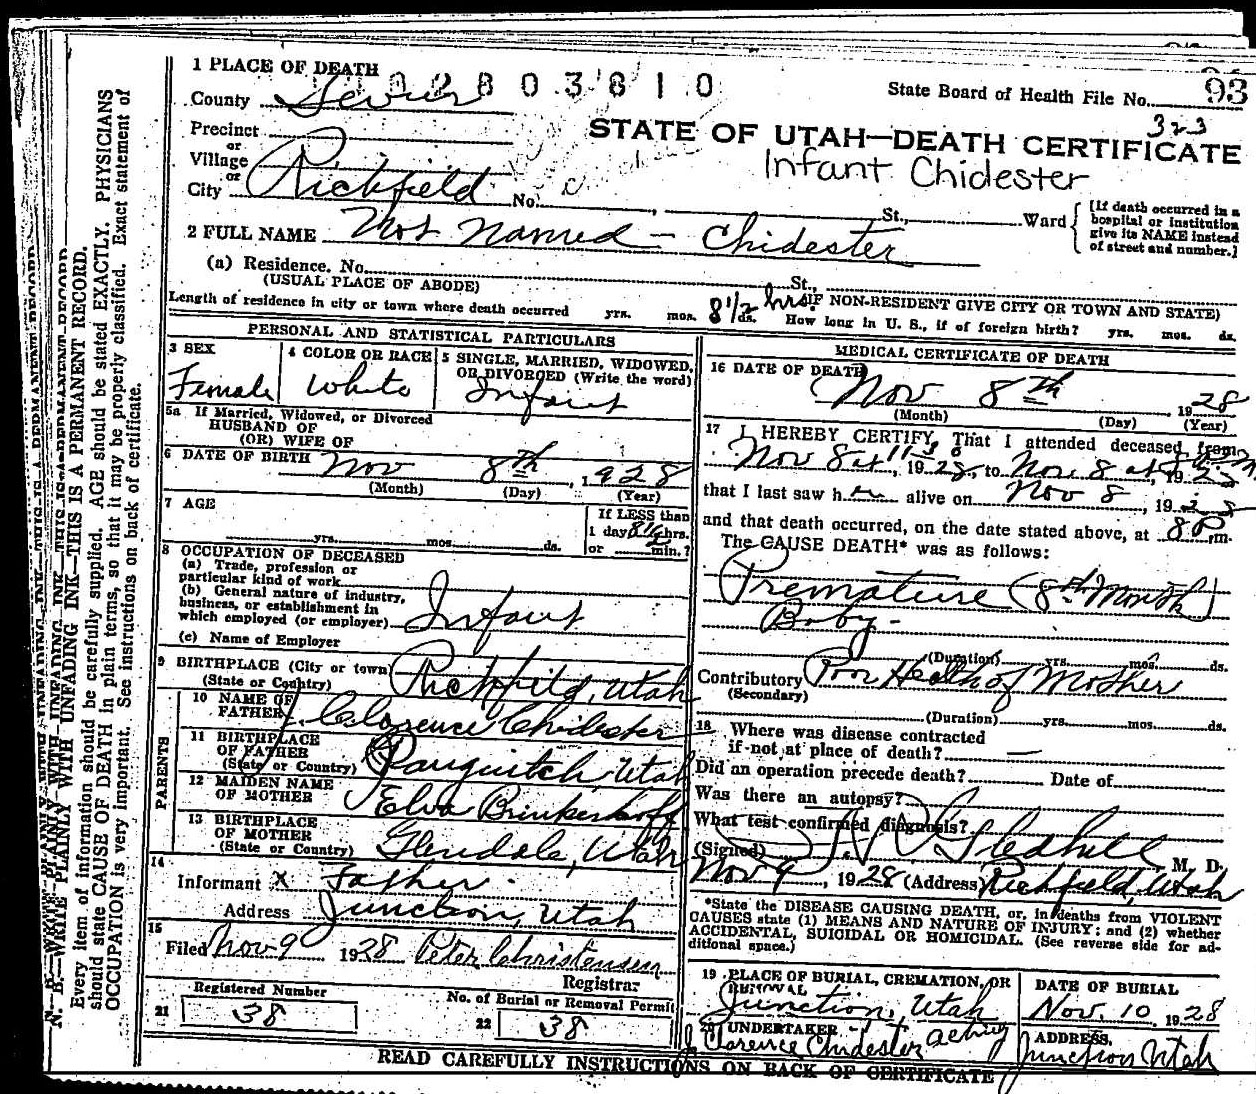 93
1 PLACE OF DEATH 0 2 8 0 3 8 1 0
State Board of Health File No.
County Sevier
323
Precinct
STATE OF UTAH—DEATH CERTIFICATE
or
Village
Infant Chidester
or
City Richfield No. , St., Ward
[If death occurred in a
hospital or institution
give its NAME instead
of street and number.]
2 FULL NAME Not Named - Chidester
(a) Residence. No. St.,
(USUAL PLACE OF ABODE) (IF NON-RESIDENT GIVE CITY OR TOWN AND STATE)
Length of residence in city or town where death occurred yrs. mos. 8 1/2 ds. hrs How long in U. S., if of foreign birth? yrs. mos. ds.
PERSONAL AND STATISTICAL PARTICULARS
3 SEX
Female
4 COLOR OR RACE
White
5 SINGLE, MARRIED, WIDOWED,
OR DIVORCED (Write the word)
Infant
5a If Married, Widowed, or Divorced
HUSBAND OF
(OR) WIFE OF
6 DATE OF BIRTH Nov 8th, 1928
(Month) (Day) (Year)
7 AGE
yrs. mos. ds.
If LESS than
1 day 8 1/2 hrs.
or min.?
8 OCCUPATION OF DECEASED
(a) Trade, profession or
particular kind of work
(b) General nature of industry,
business, or establishment in
which employed (or employer) Infant
(c) Name of Employer
9 BIRTHPLACE (City or town)
(State or Country) Richfield, Utah
PARENTS
10 NAME OF
FATHER J. Clarence Chidester
11 BIRTHPLACE
OF FATHER
(State or Country) Panguitch, Utah
12 MAIDEN NAME
OF MOTHER Elva Brinkerhoff
13 BIRTHPLACE
OF MOTHER
(State or Country) Glendale, Utah
14
Informant x Father.
Address Junction, Utah
15
Filed Nov 9 1928 Peter Christensen
Registrar
Registered Number
21 38
No. of Burial or Removal Permit
22 38
MEDICAL CERTIFICATE OF DEATH
16 DATE OF DEATH
Nov 8th, 1928
(Month) (Day) (Year)
17 I HEREBY CERTIFY, That I attended deceased from
Nov 8 at 11 30, 1928, to Nov. 8 at, 1928
that I last saw her alive on Nov 8, 1928
and that death occurred, on the date stated above, at 8 P.m.
The CAUSE DEATH* was as follows:
Premature (8th Month)
Baby.
(Duration) yrs. mos. ds.
Contributory Poor Health of Mother
(Secondary)
(Duration) yrs. mos. ds.
18 Where was disease contracted
if not at place of death? —
Did an operation precede death? Date of
Was there an autopsy?
What test confirmed diagnosis?
(Signed) Gledhill M. D.
Nov 9, 1928 (Address) Richfield, Utah
*State the DISEASE CAUSING DEATH, or, in deaths from VIOLENT
CAUSES state (1) MEANS AND NATURE OF INJURY; and (2) whether
ACCIDENTAL, SUICIDAL OR HOMICIDAL. (See reverse side for ad-
ditional space.)
19 PLACE OF BURIAL, CREMATION, OR
REMOVAL
Junction, Utah
DATE OF BURIAL
Nov. 10, 1928
20 UNDERTAKER
J Clarence Chidester acting
ADDRESS.
Junction Utah
READ CAREFULLY INSTRUCTIONS ON BACK OF CERTIFICATE
N. B.—WRITE PLAINLY WITH UNFADING INK—THIS IS A PERMANENT RECORD.
Every item of information should be carefully supplied. AGE should be stated EXACTLY. PHYSICIANS
should state CAUSE OF DEATH in plain terms, so that it may be properly classified. Exact statement of
OCCUPATION is very important. See instructions on back of certificate.